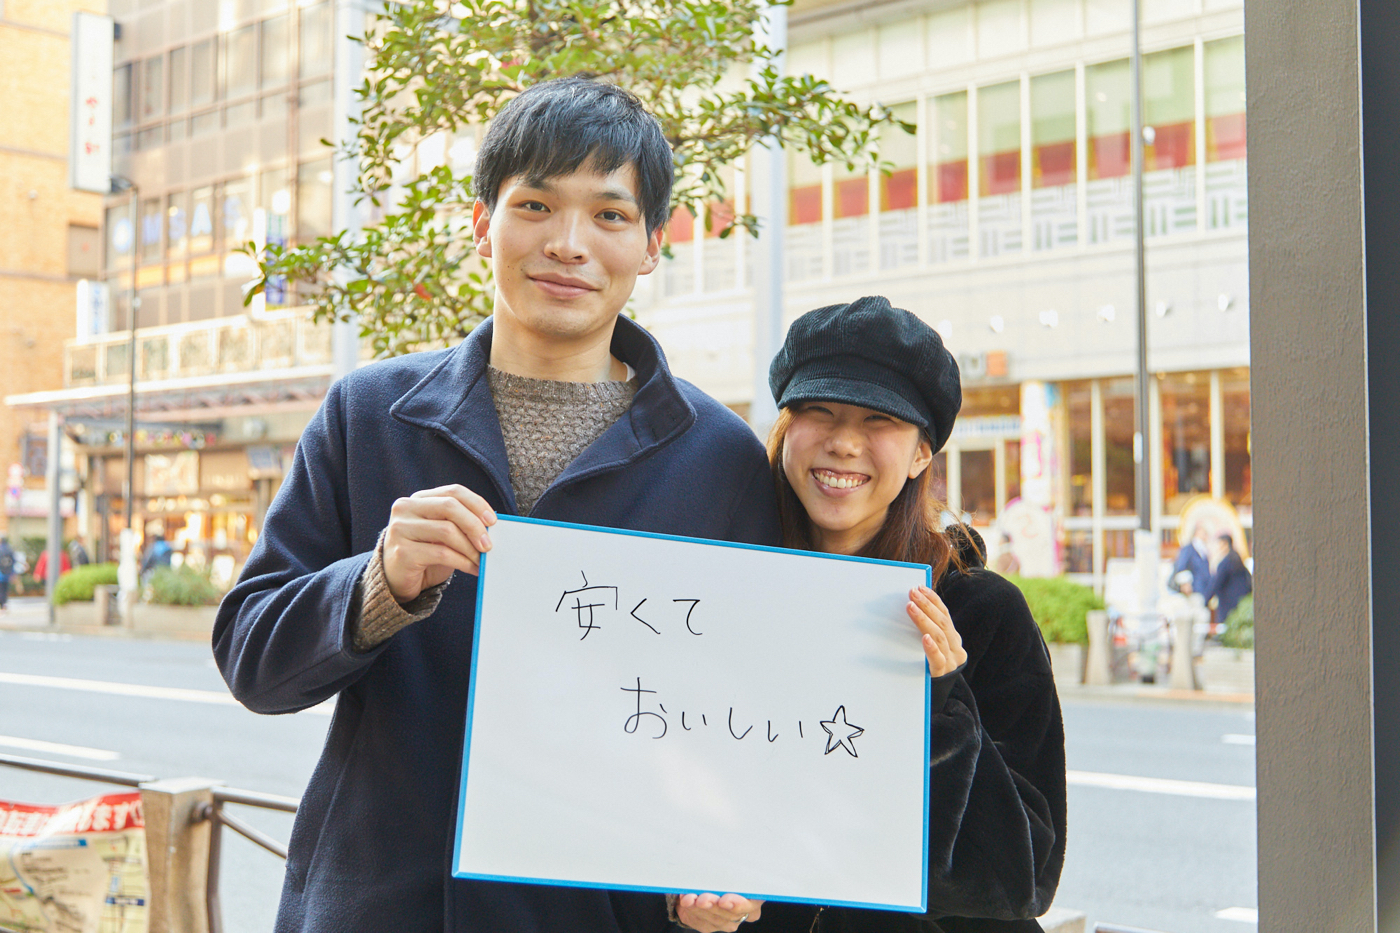 安くて
おいしい☆